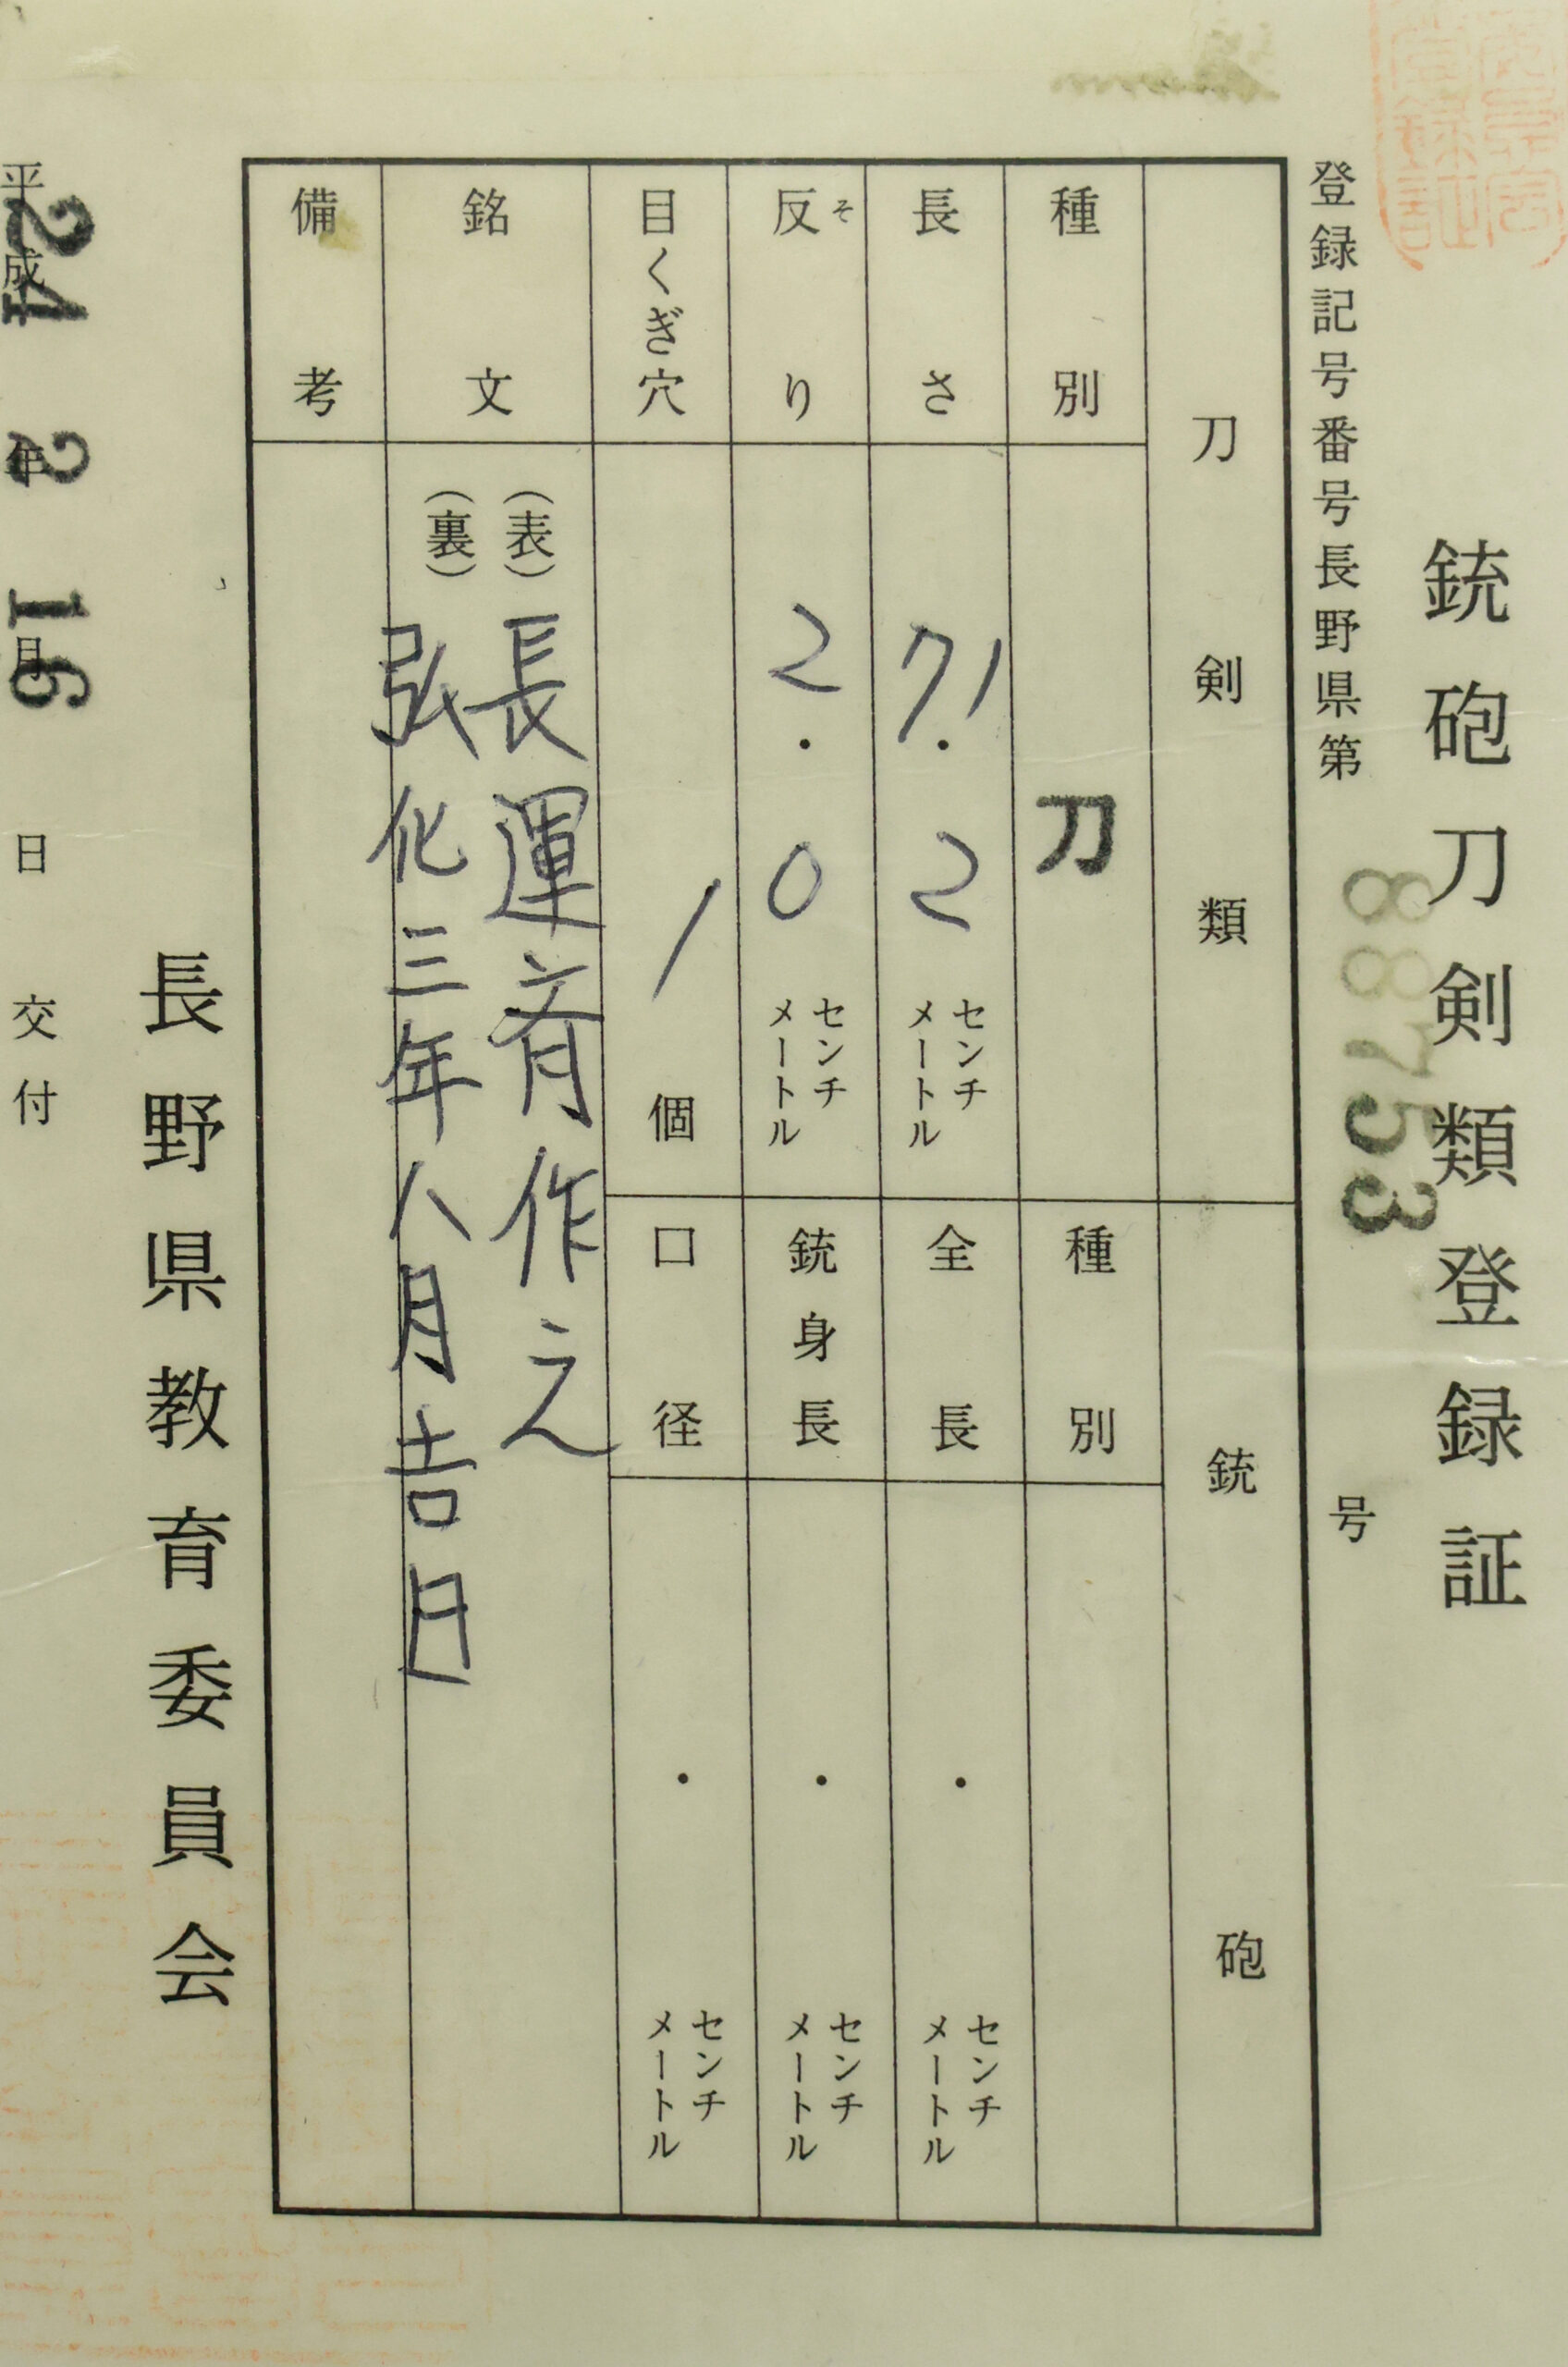 銃砲刀剣類登録証
登録記号番号長野県第 88753 号
刀剣類
種別 刀
長さ 71.2 センチメートル
反り そ 2.0 センチメートル
目くぎ穴 1 個
銘文
(表) 長運斉作之
(裏) 弘化三年八月吉日
備考
銃砲
種別
全長 ・ センチメートル
銃身長 ・ センチメートル
口径 ・ センチメートル
長野県教育委員会
平成 24 年 2 月 16 日 交付